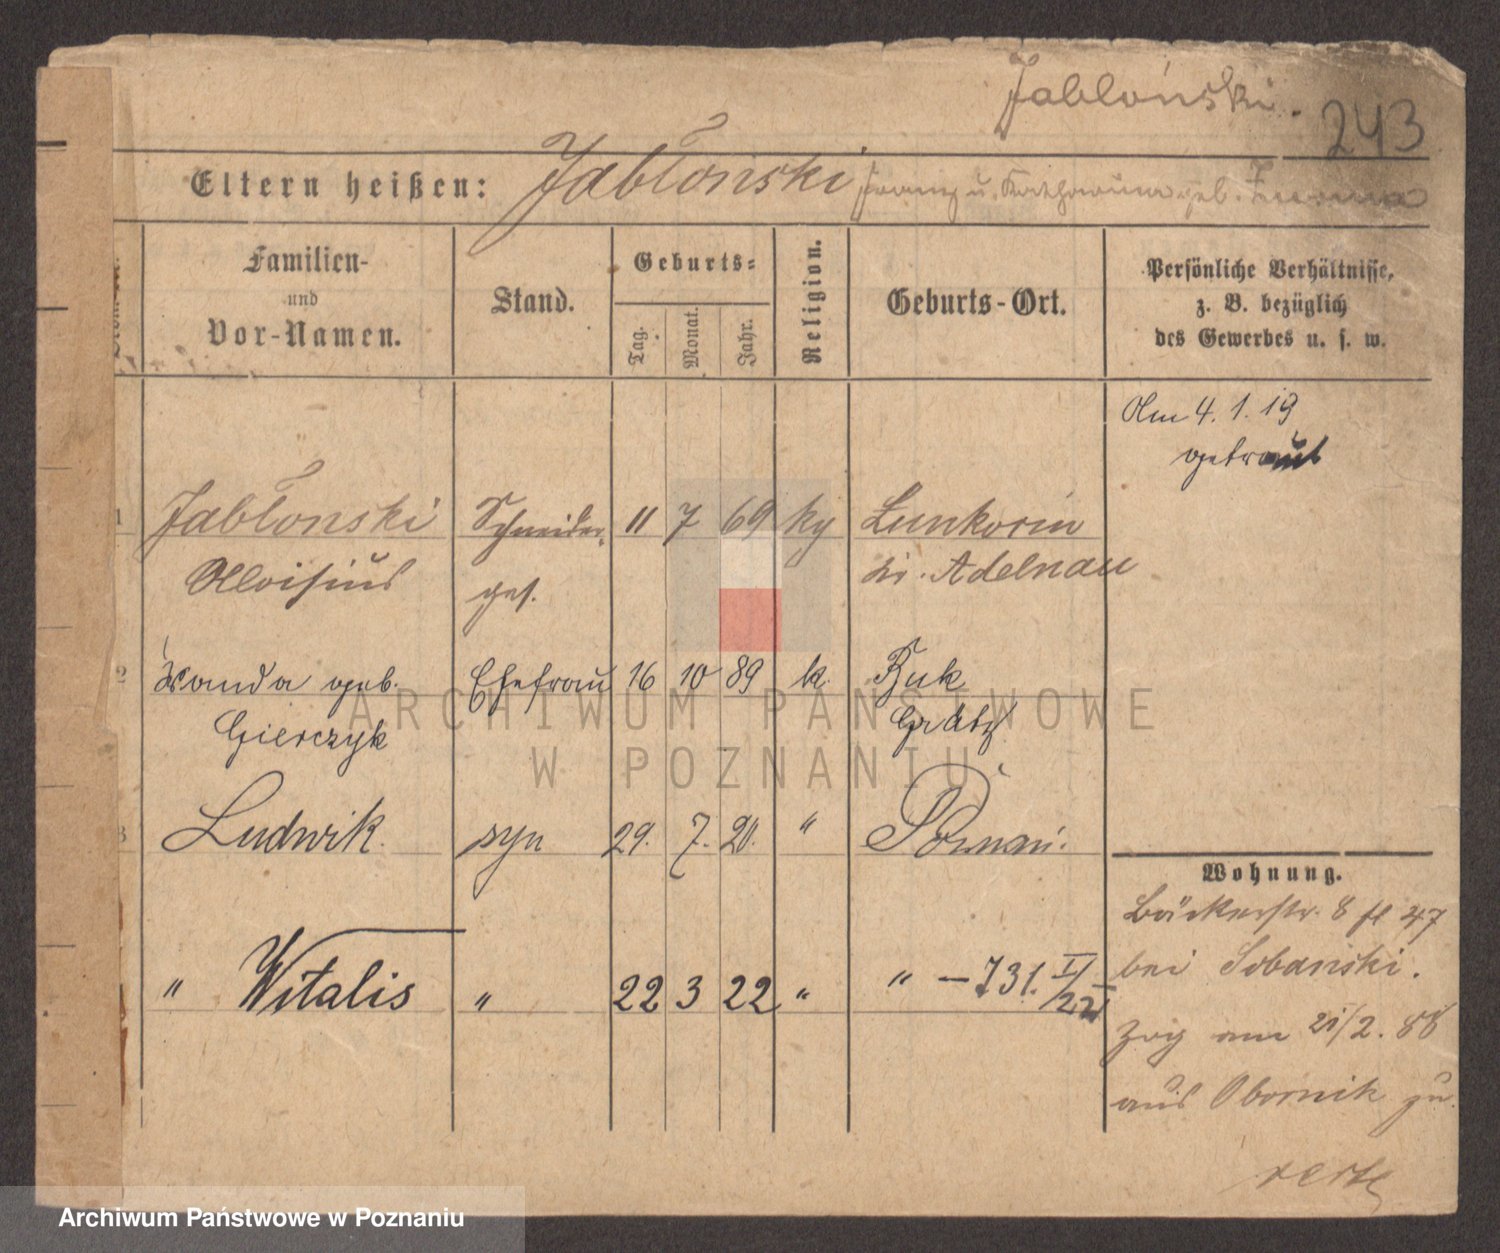 Jabłoński.
243
Eltern heißen: Jabłoński Franz u. Katharina geb.
Familien-
und
Vor-Namen.
Stand.
Geburts-
Tag.
Monat.
Jahr.
Religion.
Geburts-Ort.
Persönliche Verhältnisse,
z. B. bezüglich
des Gewerbes u. s. w.
Am 4. 1. 19
getraut
1 Jabłonski Schneider 11 7 69 ky Lunkorin
Aloisius ges. Kr. Adelnau
2 Wanda geb. Ehefrau 16 10 89 k. Buk
Gierczyk Grätz
3 Ludwik. syn 29. 7. 20. " Poznań.
Wohnung.
Bäckerstr. 8 fl 47
" Witalis " 22 3 22 " " – 731. I/22
bei Sobański.
Zog am 21/2. 88
aus Obornik zu
verte
ARCHIWUM PAŃSTWOWE
W POZNANIU
Archiwum Państwowe w Poznaniu